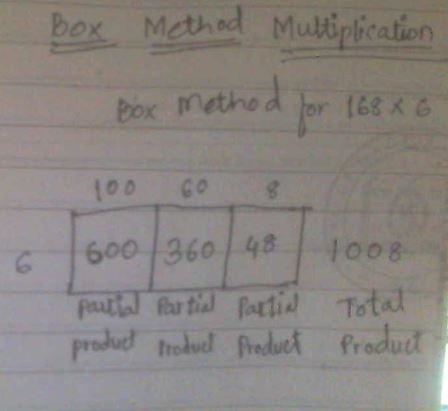 Box Method Multiplication
Box Method for 168 x 6
100 60 8
6 600 360 48 1008
Partial Partial Partial Total
product Product Product Product